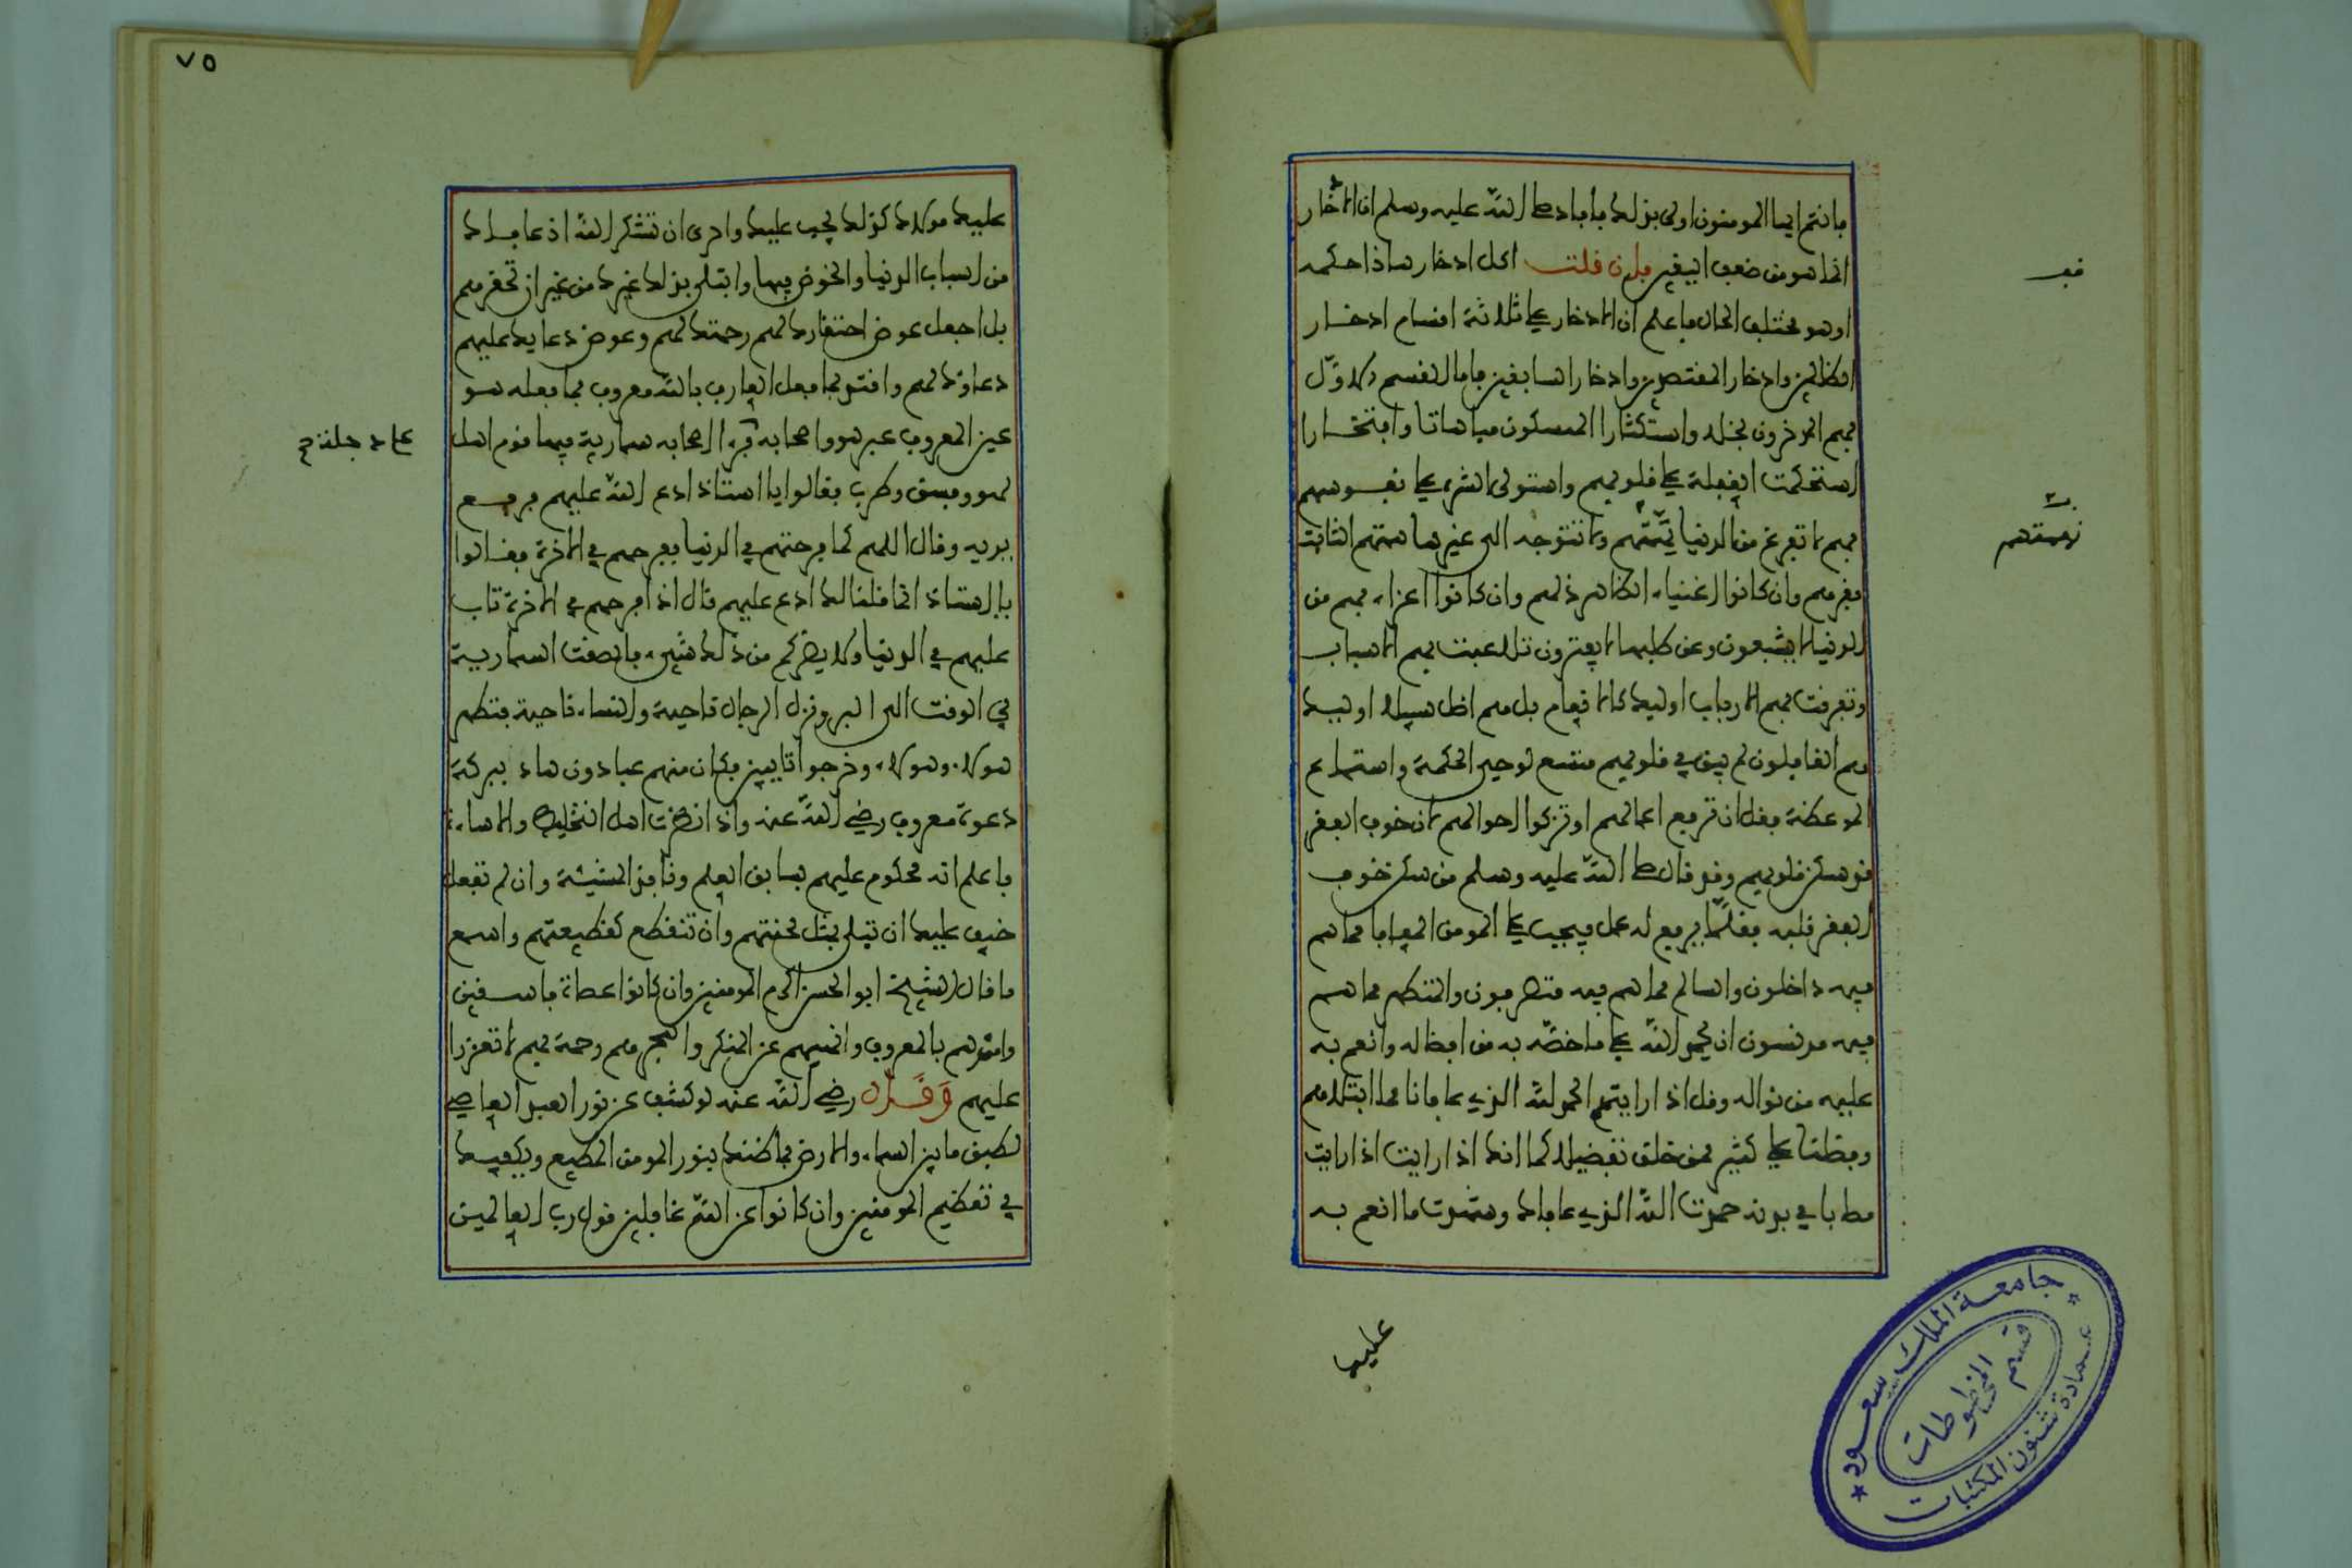 فانتم ايها المومنون اولى بذلك فافاد صلى الله عليه وسلم ان الادخار
انما هو من ضعف اليقين فان قلت اكل ادخار هاذا حكمه
او هو مختلف الحال فاعلم ان الادخار على ثلاثة اقسام ادخار
الظالمين وادخار المقتصدين وادخار السابقين فاما القسم الاول
فهم المدخرون بخلا واستكثارا الممسكون مباهاتا وافتخارا
استحكمت الغفلة على قلوبهم واستولى الشره على نفوسهم
فهم لا تفرغ من الدنيا نهمتهم ولا تتوجه الى غيرها همتهم الثابت
فقرهم وان كانوا اغنياء الظاهر ذلهم وان كانوا اعزاء فهم من
الدنيا لا يشبعون وعن طلبها لا يفترون تلاعبت بهم الاسباب
وتفرقت بهم الارباب اوليك كالانعام بل هم اضل سبيلا اوليك
هم الغافلون لم يبق في قلوبهم متسع لوعي الحكمة واستماع
الموعظة فقل ان ترفع اعمالهم او تزكوا احوالهم لان خوف الفقر
قد سكن قلوبهم وقد قال صلى الله عليه وسلم من سكن خوف
الفقر قلبه فقلما يرفع له عمل فيجب على المومن المعافا مما هم
فيه داخلون والسالم مما هم فيه متصرفون والمتطهر مما هم
فيه مدنسون ان يحمد الله على ما خصه به من افضاله وانعم به
عليه من نواله وقل اذا رايتهم الحمد لله الذي عافانا مما ابتلاهم
وفضلنا على كثير ممن خلق تفضيلا كما انك اذا رايت اذا رايت
مصابا في بدنه حمدت الله الذي عافاك وشهدت ما انعم به
فف
نهمتهم
عليك
٧٥
عليك مولاك كذلك يجب عليك واحرى ان تشكر الله اذ عافاك
من اسباب الدنيا والخوض فيها وابتلى بذلك غيرك من غير ان تحقرهم
بل اجعل عوض احتقارك لهم رحمتك لهم وعوض دعايك عليهم
دعاوك لهم واقتد بما فعل العارف بالله معروف فما فعله هو
عين المعروف عبر هو واصحابه فراى اصحابه سمارية فيها قوم اهل
لهو وفسق وطرب فقالوا يا استاذ ادع الله عليهم فرفع
يديه وقال اللهم كما فرحتهم في الدنيا ففرحهم في الاخرة فقالوا
يا استاذ انما قلنا لك ادع عليهم قال اذا فرحهم في الاخرة تاب
عليهم في الدنيا ولا يضركم من ذلك شيء فالصقت السمارية
في الوقت الى البر ونزل الرجال ناحية والنساء ناحية فتطهر
هولاء وهولاء وخرجوا تايبين فكان منهم عباد وزهاد ببركة
دعوة معروف رضي الله عنه واذا نظرت اهل التخليط والاساءة
فاعلم انه محكوم عليهم بسابق العلم ونافذ المشيئة وان لم تفعل
خيف عليك ان تبلى بمثل محنتهم وان تنقطع كقطيعتهم واسمع
ما قال الشيخ ابو الحسن اكرم المومنين وان كانوا عصاة فاسقين
وامرهم بالمعروف وانههم عن المنكر واهجرهم رحمة بهم لا تعززا
عليهم وقال رضي الله عنه لو كشف عن نور العبد العاصي
لطبق ما بين السماء والارض فما ظنك بنور المومن المطيع ويكفيك
في تعظيم المومنين وان كانوا عن الله غافلين قول رب العالمين
جامعة الملك سعود
عمادة شئون المكتبات
قسم المخطوطات